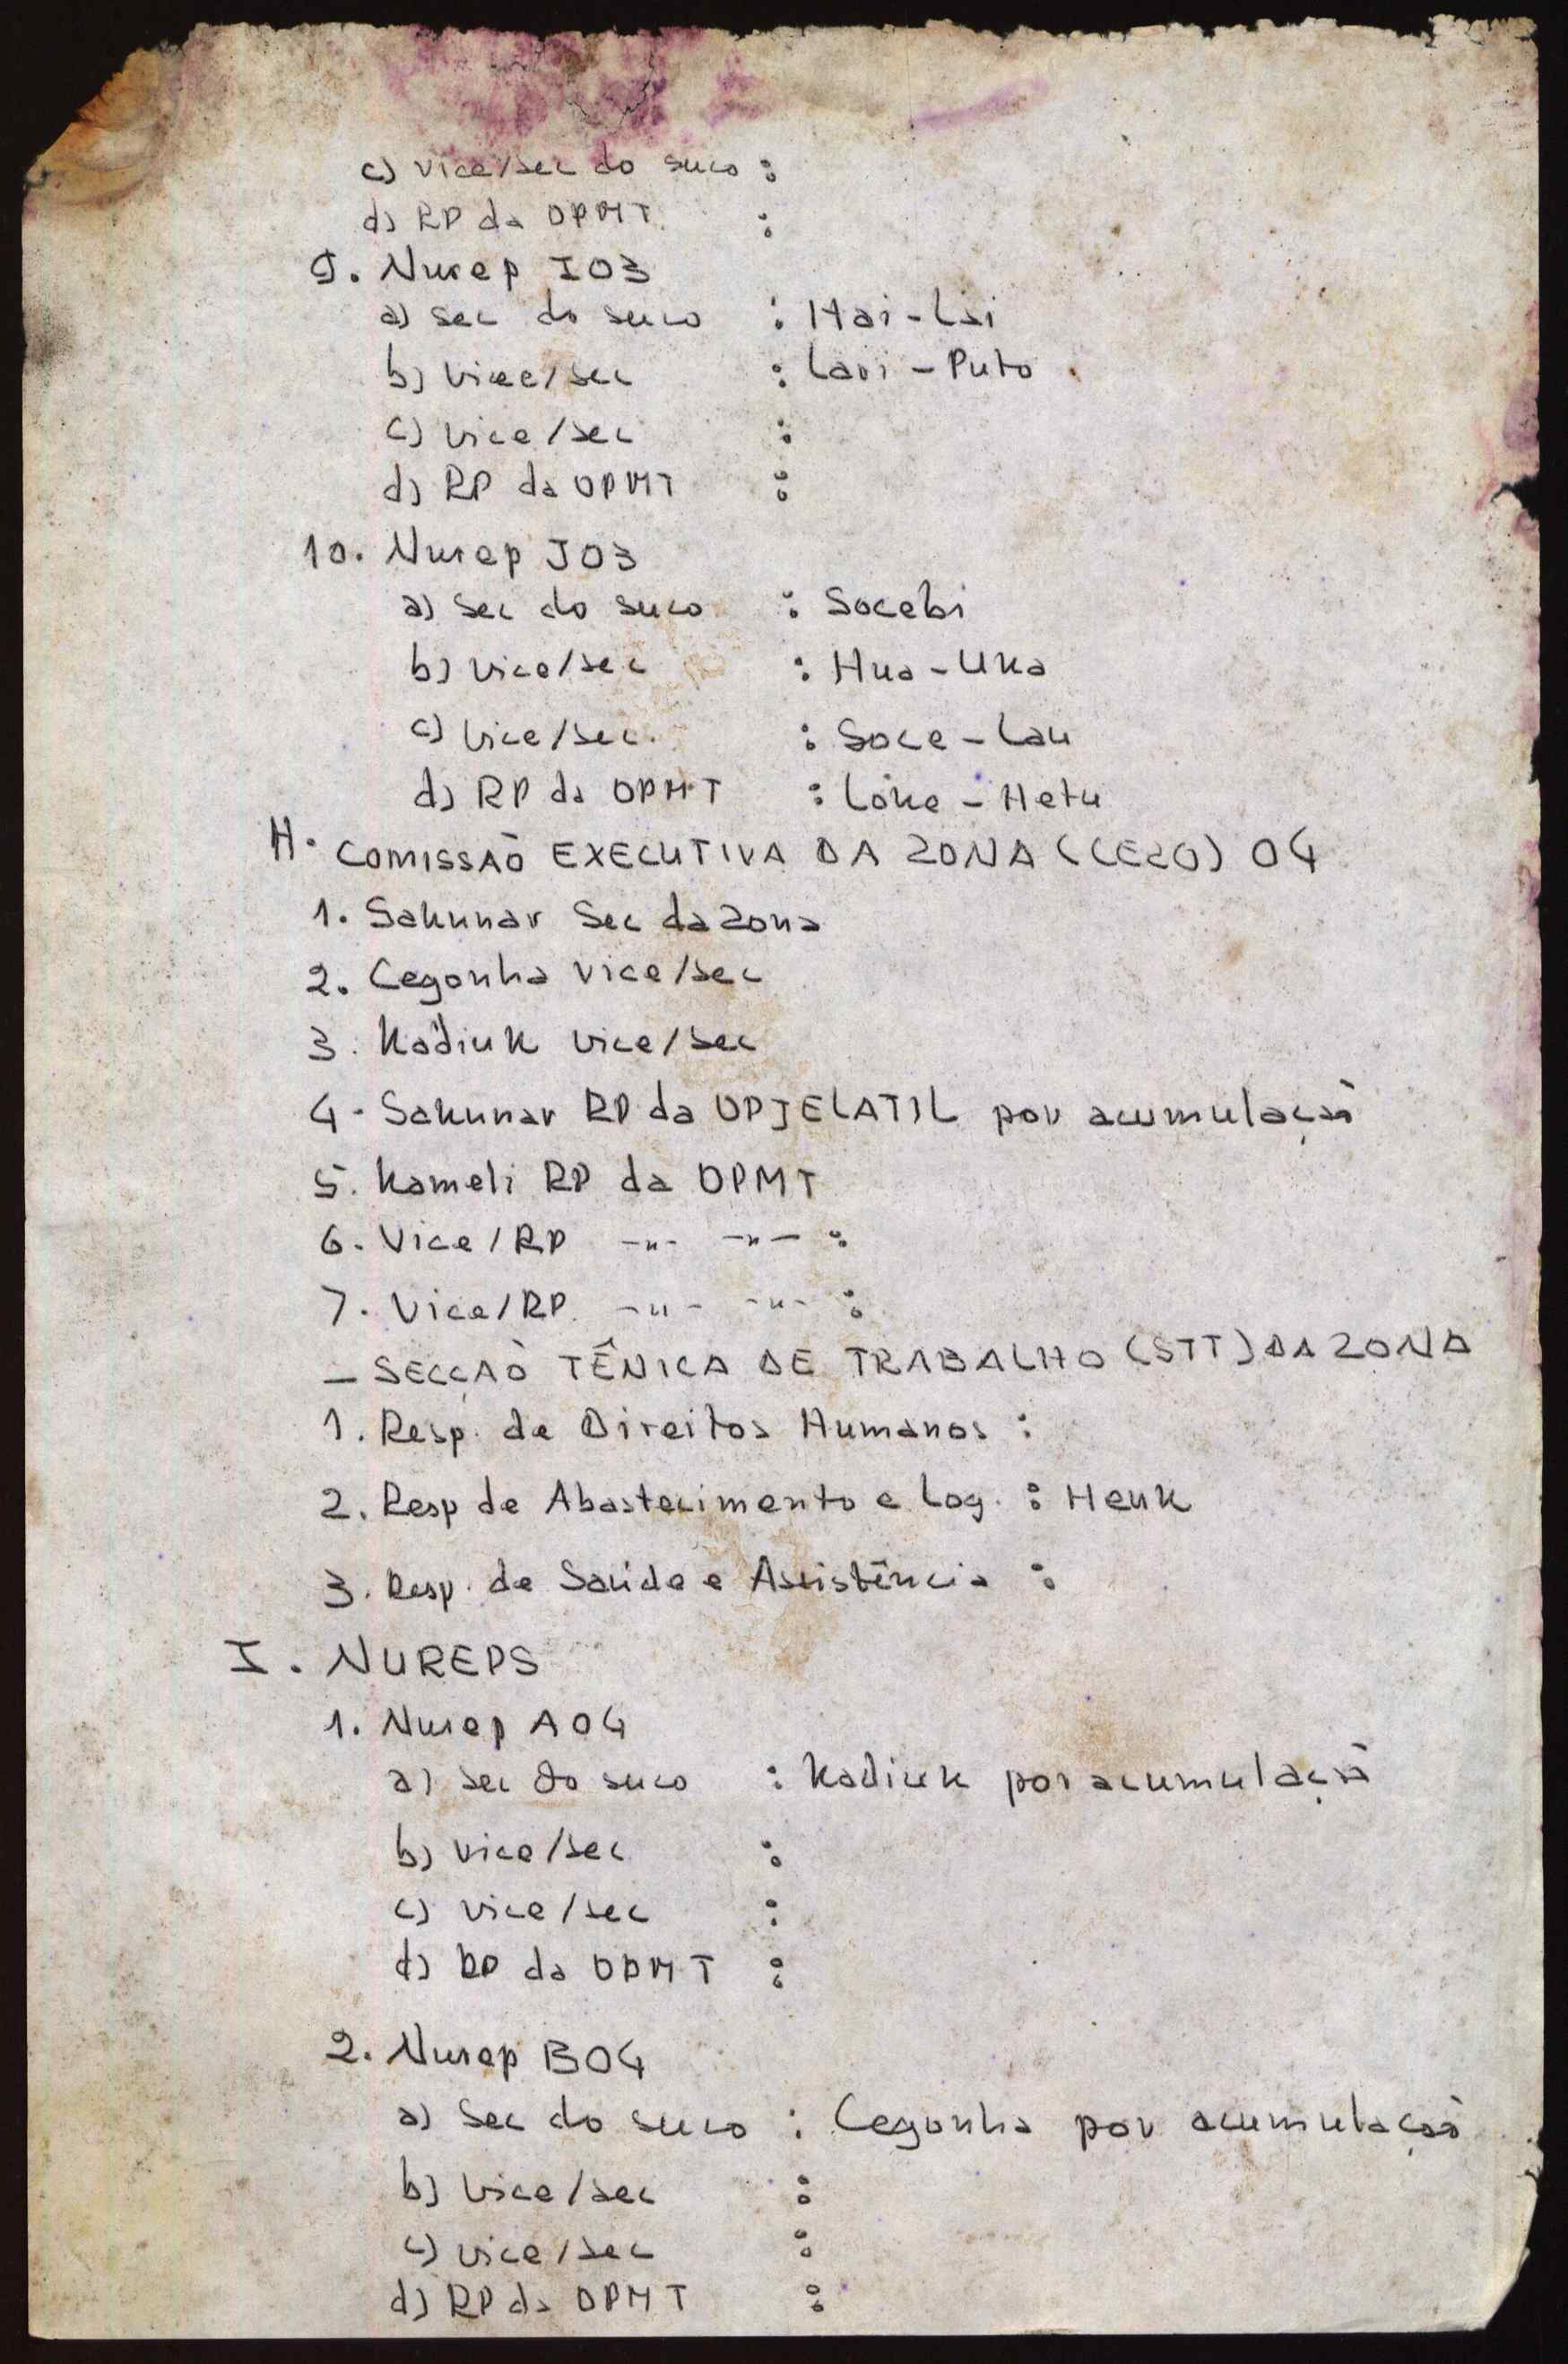 c) vice/sec do suco :
d) RP da OPMT :
9. Nurep I03
a) sec do suco : Hai-Lai
b) vice/sec : Lari-Puto
c) vice/sec :
d) RP da OPMT :
10. Nurep J03
a) sec do suco : Socebi
b) vice/sec : Hua-Uka
c) vice/sec. : Soce-Lau
d) RP da OPMT : Loke-Hetu
H. COMISSÃO EXECUTIVA DA ZONA (CEZO) 04
1. Sakunar Sec da zona
2. Cegonha vice/sec
3. Kadiuk vice/sec
4. Sakunar RP da OPJELATIL por acumulação
5. Kameli RP da OPMT
6. Vice/RP -"- -"- :
7. Vice/RP -"- -"- :
- SECÇÃO TÊNICA DE TRABALHO (STT) DA ZONA
1. Resp. de Direitos Humanos :
2. Resp de Abastecimento e Log. : Henk
3. Resp. de Saúde e Assistência :
I. NUREPS
1. Nurep A04
a) sec do suco : Kadiuk por acumulação
b) vice/sec :
c) vice/sec :
d) RP da OPMT :
2. Nurep B04
a) Sec do suco : Cegonha por acumulação
b) vice/sec :
c) vice/sec :
d) RP da OPMT :